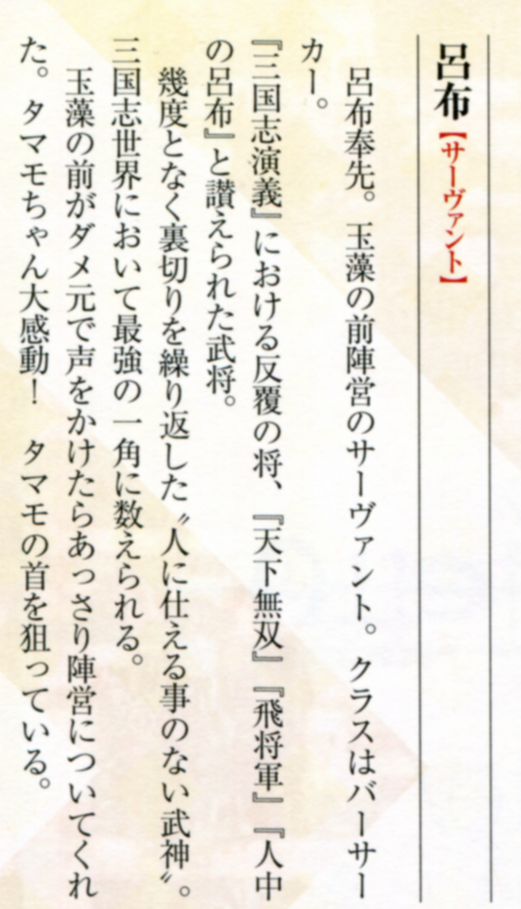 呂布【サーヴァント】
呂布奉先。玉藻の前陣営のサーヴァント。クラスはバーサー
カー。
『三国志演義』における反覆の将、『天下無双』『飛将軍』『人中
の呂布』と讃えられた武将。
幾度となく裏切りを繰り返した〝人に仕える事のない武神〟。
三国志世界において最強の一角に数えられる。
玉藻の前がダメ元で声をかけたらあっさり陣営についてくれ
た。タマモちゃん大感動！　タマモの首を狙っている。